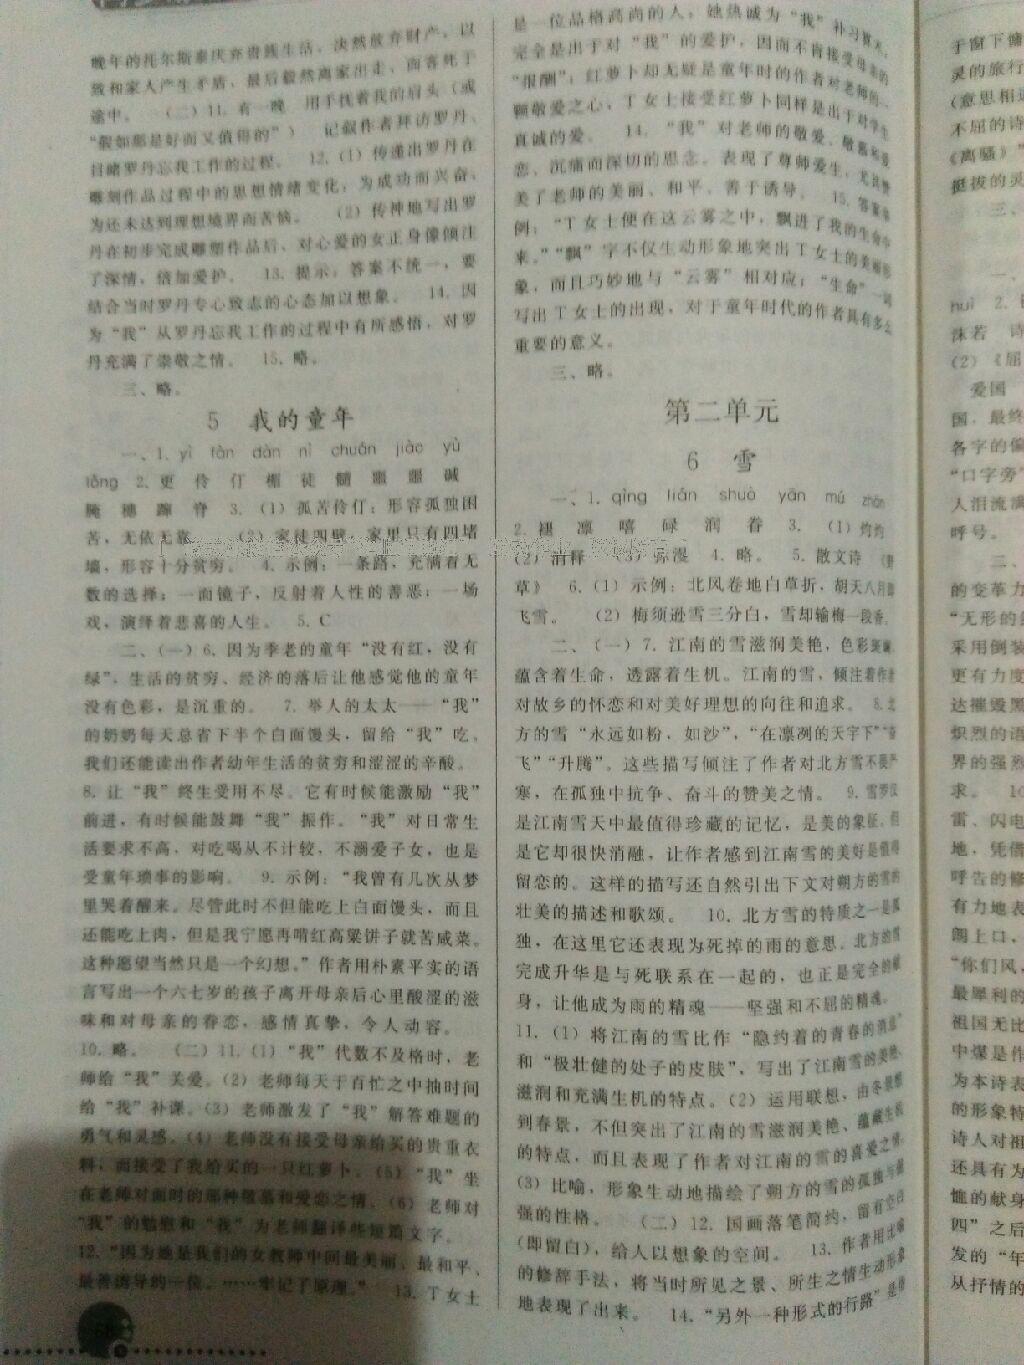 晚年的托尔斯泰厌弃贵族生活、决然放弃财产，以
致和家人产生矛盾、最后毅然离家出走、而客死于
途中。 （二）11. 有一晚 用手扶着我的肩头（或
“假如那是好而又值得的”） 记叙作者拜访罗丹、
目睹罗丹忘我工作的过程。 12.（1）传递出罗丹在
雕刻作品过程中的思想情绪变化，为成功而兴奋、
为还未达到理想境界而苦恼。 （2）传神地写出罗
丹在初步完成雕塑作品后、对心爱的女正身像倾注
了深情，倍加爱护。 13. 提示：答案不统一，要
结合当时罗丹专心致志的心态加以想象。 14. 因
为“我”从罗丹忘我工作的过程中有所感悟，对罗
丹充满了崇敬之情。 15. 略。
三、略。
5 我的童年
一、1. yì tàn dàn nì chuán jiào yù
lǒng 2. 更 伶 仃 徒 髓 噩 噩 碱
腌 穗 蹿 脊 3.（1）孤苦伶仃：形容孤独困
苦，无依无靠。 （2）家徒四壁：家里只有四堵
墙，形容十分贫穷。 4. 示例：一条路，充满着无
数的选择；一面镜子，反射着人性的善恶；一场
戏，演绎着悲喜的人生。 5. C
二、（一）6. 因为季老的童年“没有红，没有
绿”，生活的贫穷、经济的落后让他感觉他的童年
没有色彩，是沉重的。 7. 举人的太太——“我”
的奶奶每天总省下半个白面馒头，留给“我”吃。
我们还能读出作者幼年生活的贫穷和涩涩的辛酸。
8. 让“我”终生受用不尽。它有时候能激励“我”
前进，有时候能鼓舞“我”振作。“我”对日常生
活要求不高，对吃喝从不计较，不溺爱子女，也是
受童年琐事的影响。 9. 示例：“我曾有几次从梦
里哭着醒来。尽管此时不但能吃上白面馒头，而且
还能吃上肉，但是我宁愿再啃红高粱饼子就苦咸菜。
这种愿望当然只是一个幻想。”作者用朴素平实的语
言写出一个六七岁的孩子离开母亲后心里酸涩的滋
味和对母亲的眷恋，感情真挚，令人动容。
10. 略。 （二）11.（1）“我”代数不及格时，老
师给“我”关爱。（2）老师每天于百忙之中抽时间
给“我”补课。（3）老师激发了“我”解答难题的
勇气和灵感。（4）老师没有接受母亲给买的贵重衣
料，而接受了我给买的一只红萝卜。（5）“我”坐
在老师对面时的那种敬慕和爱恋之情。（6）老师对
“我”的勉慰和“我”为老师翻译些短篇文字。
12. “因为她是我们的女教师中间最美丽、最和平、
最善诱导的一位。……牢记了原理。” 13. T女士
是一位品格高尚的人，她热诚为“我”补习算术，
完全是出于对“我”的爱护，因而不肯接受母亲的
“报酬”；红萝卜却无疑是童年时的作者对老师的一
颗敬爱之心，T女士接受红萝卜同样是出于对学生
真诚的爱。 14. “我”对老师的敬爱、敬慕和爱
恋、沉痛而深切的思念。表现了尊师爱生，尤其赞
美了老师的美丽、和平、善于诱导。 15. 答案举
例：“T女士便在这云雾之中，飘进了我的生命中
来。”“飘”字不仅生动形象地突出T女士的美丽形
象，而且巧妙地与“云雾”相对应；“生命”一词
写出T女士的出现，对于童年时代的作者具有多么
重要的意义。
三、略。
第二单元
6 雪
一、1. qìng lián shuò yān mú zhǎn
2. 褪 凛 嘻 绿 润 眷 3.（1）灼灼
（2）消释 （3）弥漫 4. 略。 5. 散文诗 《野
草》 6.（1）示例：北风卷地白草折，胡天八月即
飞雪。 （2）梅须逊雪三分白，雪却输梅一段香。
二、（一）7. 江南的雪滋润美艳，色彩斑斓，
蕴含着生命，透露着生机。江南的雪，倾注着作者
对故乡的怀恋和对美好理想的向往和追求。 8. 北
方的雪“永远如粉，如沙”，“在凛冽的天宇下”“奋
飞”“升腾”。这些描写倾注了作者对北方雪不畏严
寒，在孤独中抗争、奋斗的赞美之情。 9. 雪罗汉
是江南雪天中最值得珍藏的记忆，是美的象征，但
是它却很快消融，让作者感到江南雪的美好是值得
留恋的。这样的描写还自然引出下文对朔方的雪的
壮美的描述和歌颂。 10. 北方雪的特质之一是孤
独，在这里它还表现为死掉的雨的意思。北方的雪
完成升华是与死联系在一起的，也正是完全的献
身，让他成为雨的精魂——坚强和不屈的精魂。
11.（1）将江南的雪比作“隐约着的青春的消息”
和“极壮健的处子的皮肤”，写出了江南雪的美艳、
滋润和充满生机的特点。（2）运用联想，由冬景想
到春景，不但突出了江南的雪滋润美艳、蕴藏生机
的特点，而且表现了作者对江南的雪的喜爱之情。
（3）比喻，形象生动地描绘了朔方的雪的孤独与倔
强的性格。 （二）12. 国画落笔简约，留有空白
（即留白），给人以想象的空间。 13. 作者用比喻
的修辞手法，将当时所见之景、所生之情生动形象
地表现了出来。 14. “另外一种形式的行路”是指
于窗下
灵的旅行
（意思相近
不屈的诗
《离骚》”
挺拔的灵
三、
一、
huì 2.
沫若 诗
（2）《屈
爱国
国，最终
各字的偏
“口字旁”
人泪流满
呼号。
二、
的变革力
“无形的
采用倒装
更有力度
达摧毁黑
炽烈的语
界的强烈
求。 10
雷、闪电
地，凭借
呼告的修
有力地表
朗上口，
“你们风，
最犀利的
祖国无比
中煤是作
为本诗表
的形象特
诗人对祖
还具有为
恤的献身
四”之后
发的“年
从抒情的